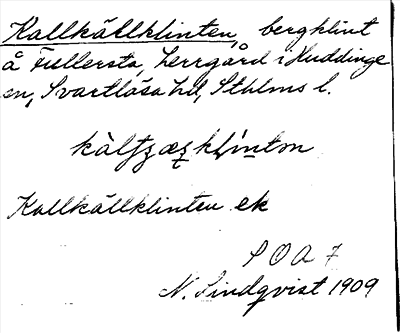 Kallkällklinten, bergklint
å Fullersta, herrgård i Huddinge
sn, Svartlösa hd, Sthlms l.
Kallkällklinten ek
S O A 7
N. Lindqvist 1909